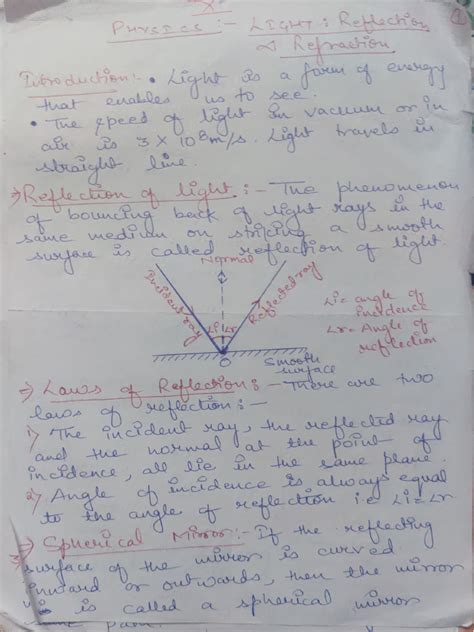 X
1
PHYSICS :- LIGHT : Reflection
& Refraction
Introduction:- • Light is a form of energy
that enables us to see.
• The speed of light in vacuum or in
air is 3 X 10⁸ m/s. Light travels in
straight line.
⇒ Reflection of light :- The phenomenon
of bouncing back of light rays in the
same medium on stricing a smooth
surface is called reflection of light.
Normal
Incident ray
Reflected ray
∠i ∠r
∠i = angle of
incidence
∠r = Angle of
reflection
O
Smooth
surface
⇒ Laws of Reflection :- There are two
laws of reflection :-
1) The incident ray, the reflected ray
and the normal at the point of
incidence, all lie in the same plane.
2) Angle of incidence is always equal
to the angle of reflection i.e ∠i = ∠r
⇒ Spherical Mirror :- If the reflecting
surface of the mirror is curved
inward or outwards, then the mirror
is called a spherical mirror